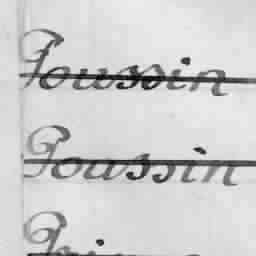 Poussin
Poussin